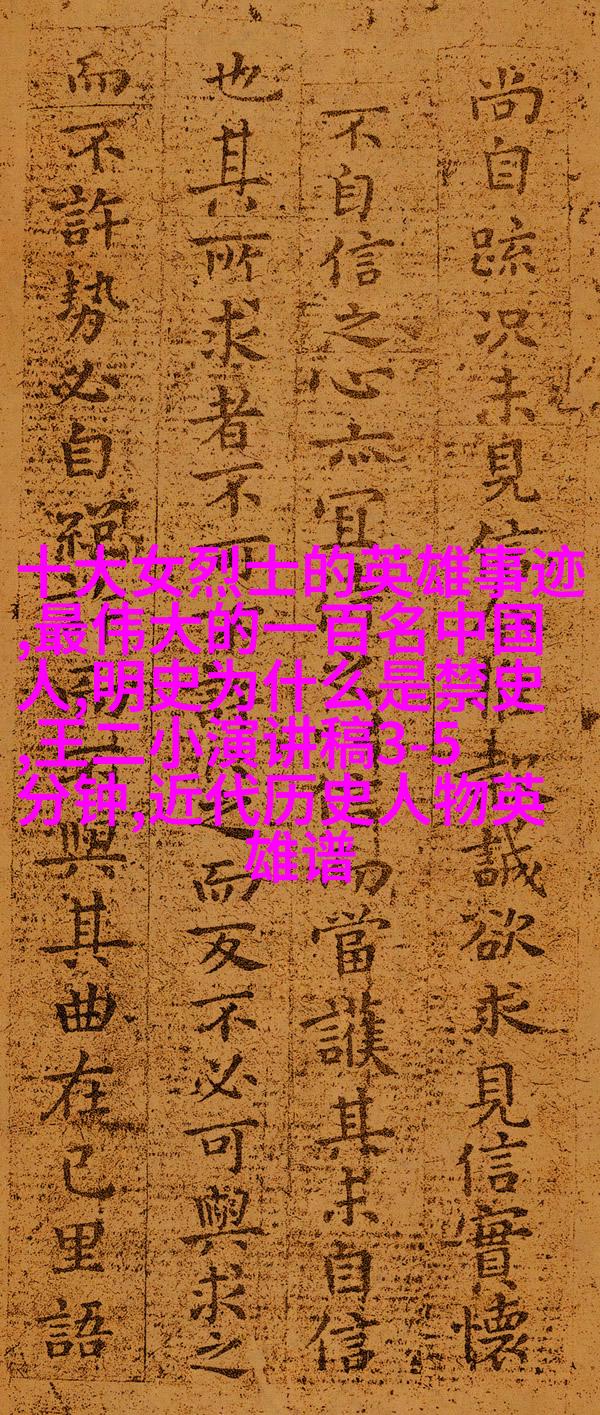 尚自疏况未見信誠欲求見信實懷
不自信之心亦宜當護其未自信
也其所求者不而反不必可與求之
而不許勢必自與其曲在己里語
十大女烈士的英雄事迹
,最伟大的一百名中国
人,明史为什么是禁史
,王二小演讲稿3-5
分钟,近代历史人物英
雄谱